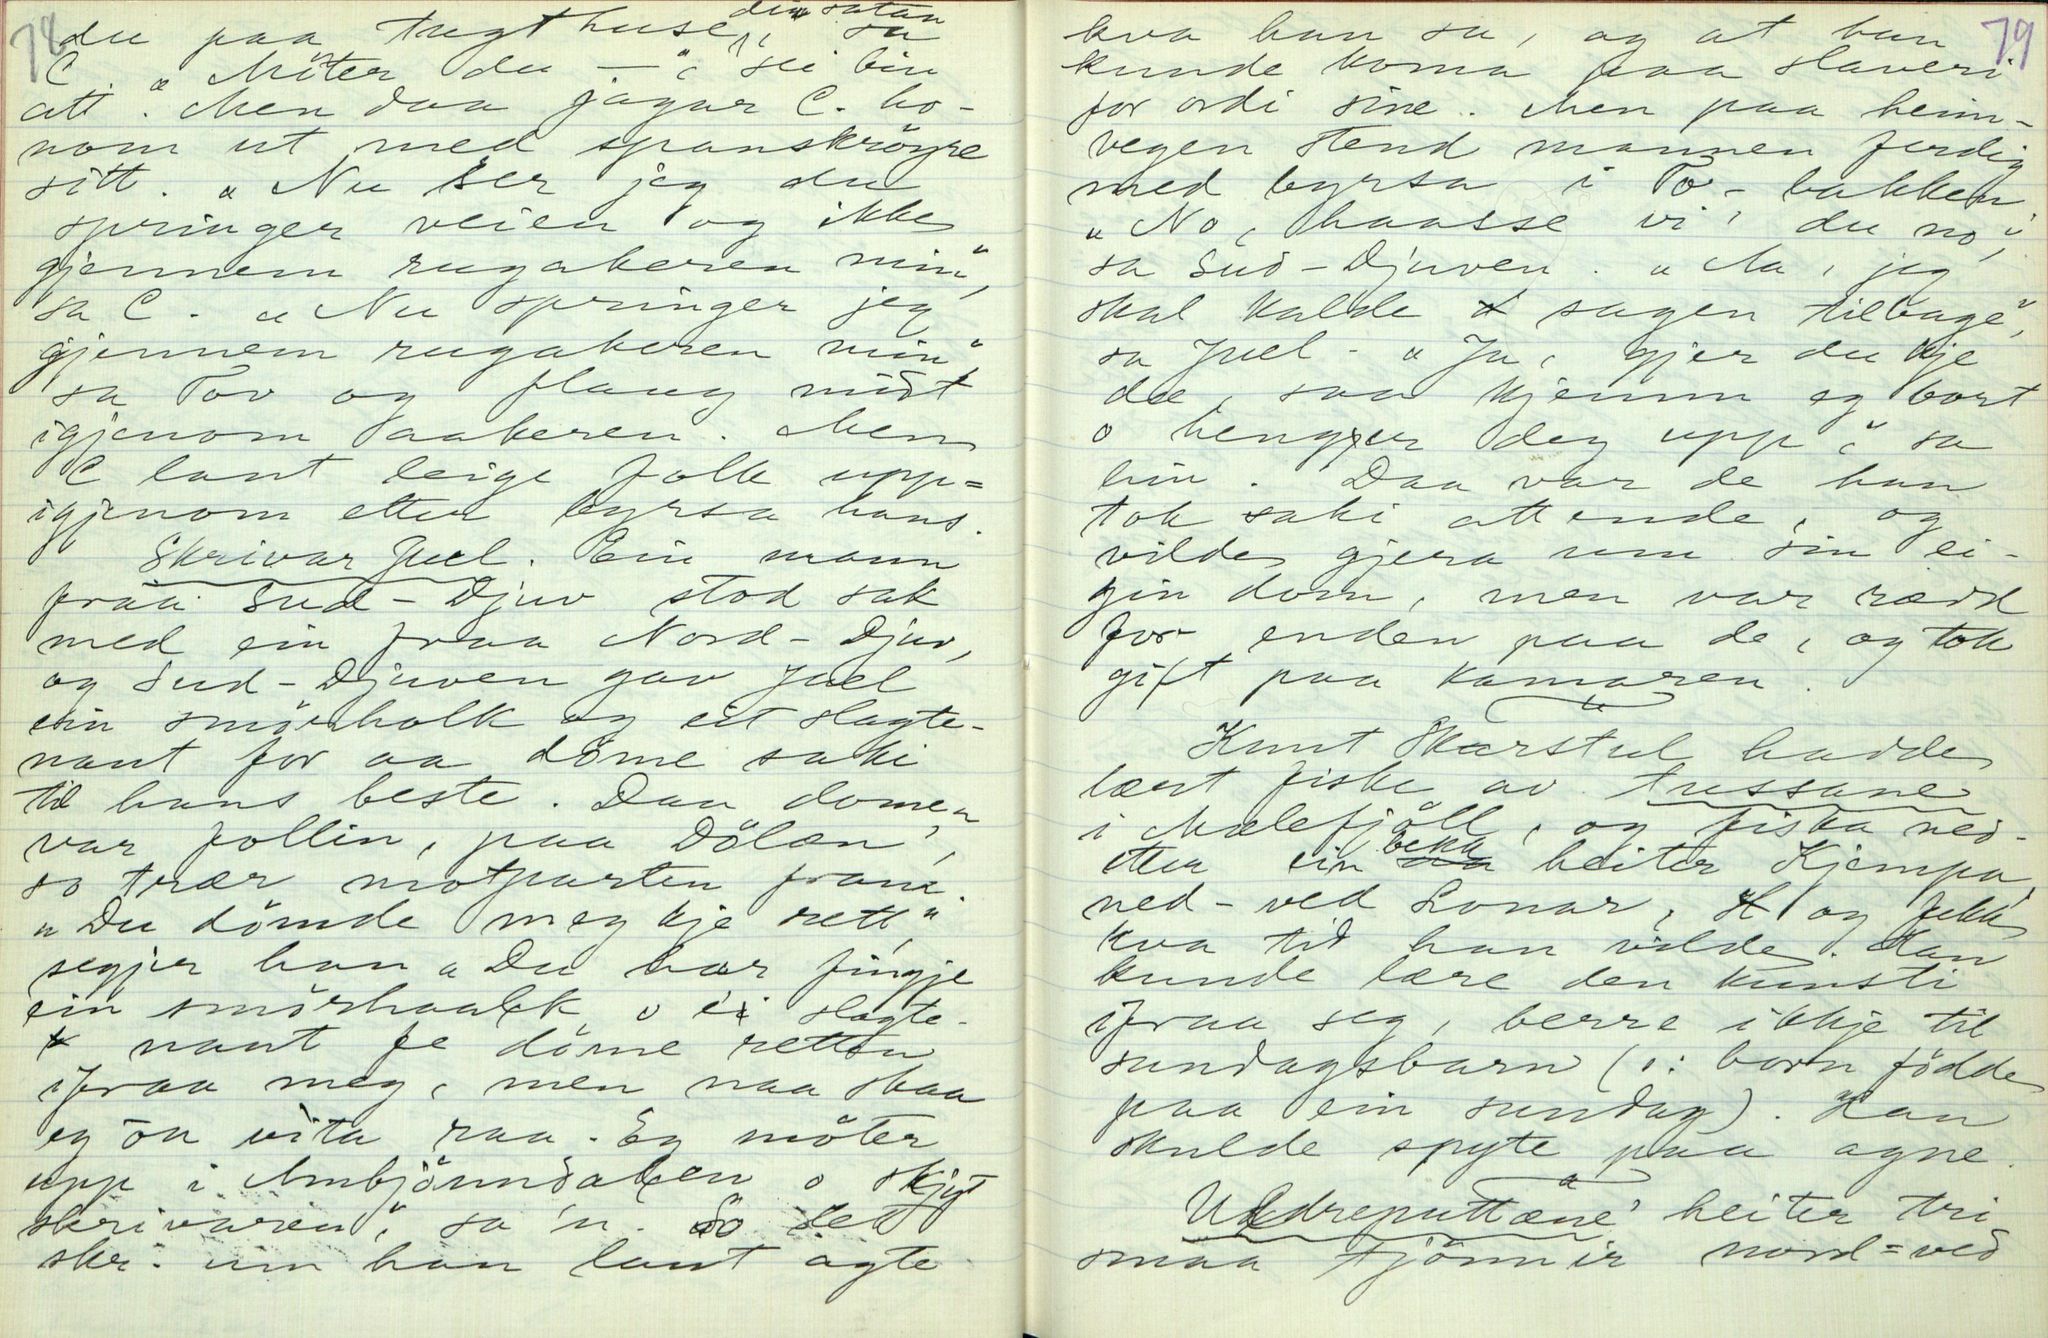 78
du paa tugthuse, din satan", sa
C. "Möter du —", sei hin
att. Men daa jagar C. ho-
nom ut med spanskröyre
sitt. "Nu ser jeg du
springer veien og ikke
gjennem rugakeren min",
sa C. "Nu springer jeg
gjennem rugakeren min"
sa Tov og flaug midt
igjenom aakeren. Men
C laut leige folk upp=
igjenom etter byrsa hans.
Skrivar Juel. Ein mann
fraa Sud-Djuv stod sak
med ein fraa Nord-Djuv,
og Sud-Djuven gav Juel
ein smörholk og eit slagte-
naut for aa döme saki
til hans beste. Daa domen
var follin, paa Dölan',
so trær motparten fram.
"Du dömde meg kje rett",
segjer han "Du har fingje
ein smörhaalk o ei slagte-
naut fe döme retten
ifraa meg, men naa skaa
eg ön vita raa. Eg möter
upp i Ambjönndalen o skjyt
skrivaren", sa 'n. So let
skr. um han laut agte
79
kva han sa, og at han
kunde koma paa slaveri
for ordi sine. Men paa heim-
vegen stend mannen ferdig
med byrsa i To-bakken.
"No, haasse vi' du no",
sa Sud-Djuven. "Aa, jeg
skal kalde sagen tilbage",
sa Juel. "Ja, gjer du kje
de, saa kjemm eg bort
o hengjer deg upp", sa
hin. Daa var de han
tok saki attende, og
vilde gjera um sin ei-
gin dom, men var rædd
for enden paa de, og tok
gift paa kamaren.
Knut Skarstul hadde
lært fiske av tussane
i Mælefjöll, og fiska ned-
etter ein bekk heiter Kjempa,
ned-ved Lonar, og fekk
kva tid han vilde. Han
kunde lære den kunsti
ifraa seg, berre ikkje til
sundagsbarn (ɔ: born födde
paa ein sundag). Han
skulde spyte paa agne.
Uldreputtæne' heiter tri
smaa tjönnir nord=ved